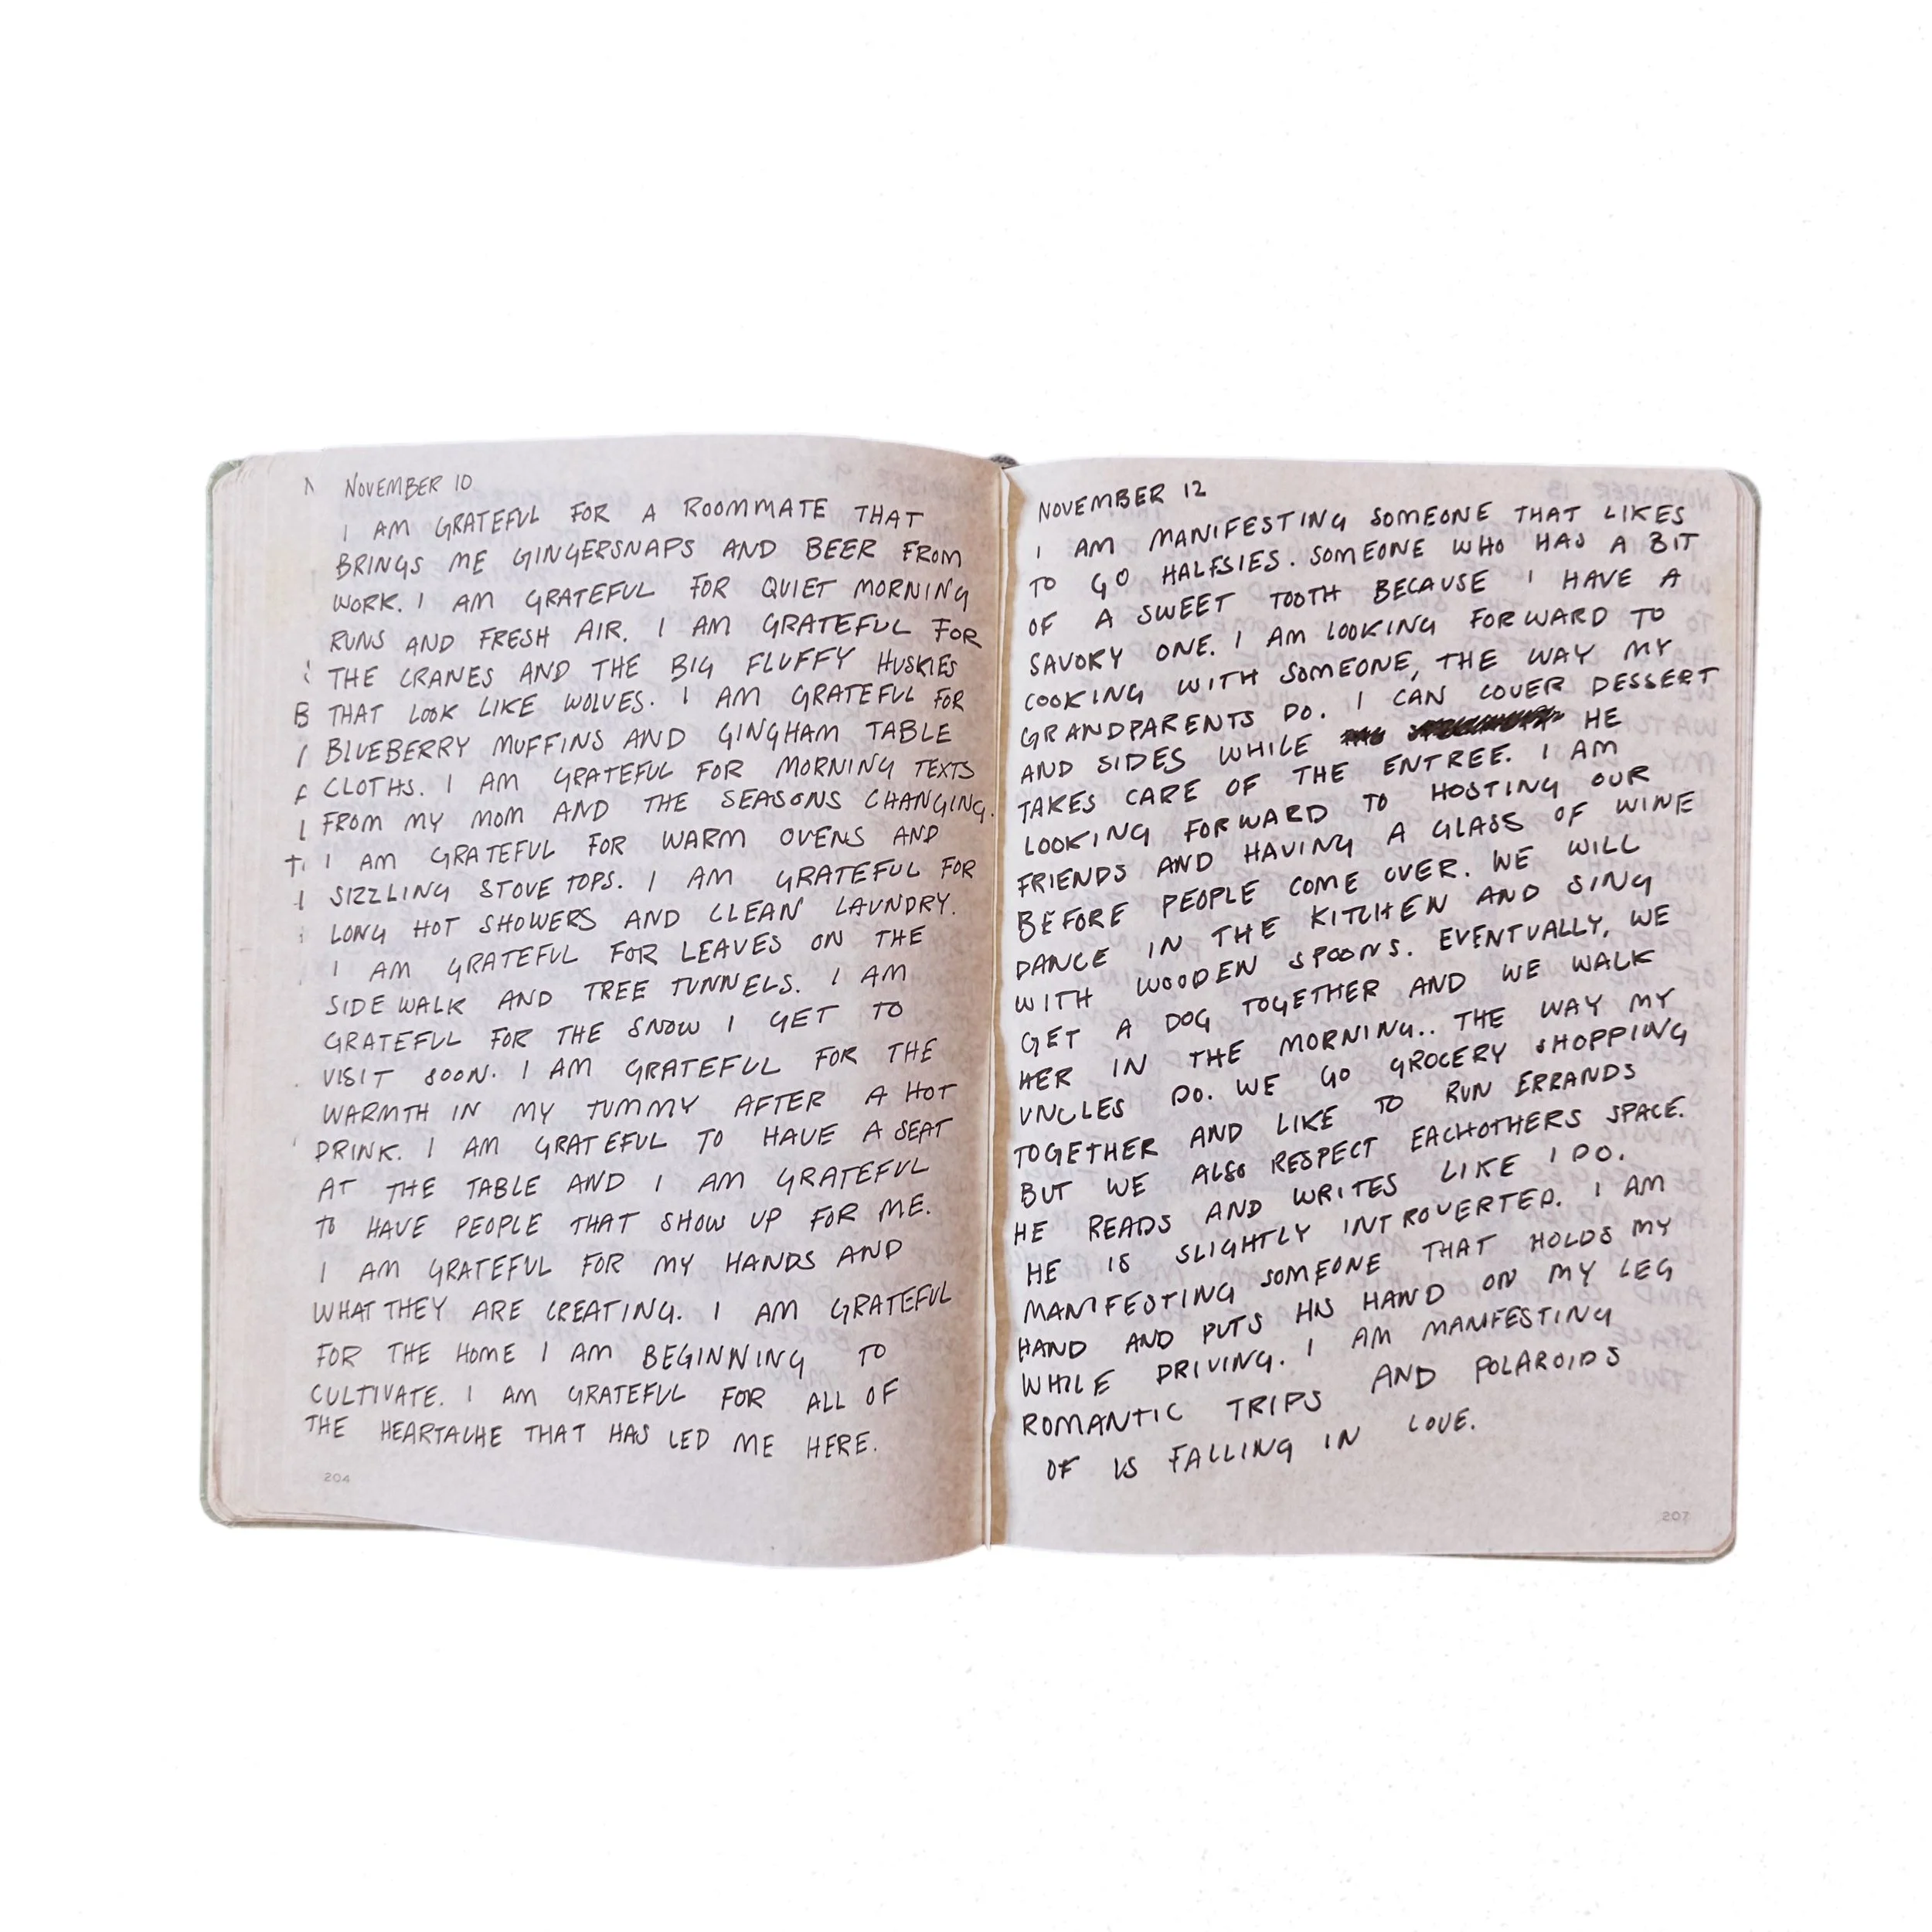 NOVEMBER 10
I AM GRATEFUL FOR A ROOMMATE THAT
BRINGS ME GINGERSNAPS AND BEER FROM
WORK. I AM GRATEFUL FOR QUIET MORNING
RUNS AND FRESH AIR. I AM GRATEFUL FOR
THE CRANES AND THE BIG FLUFFY HUSKIES
THAT LOOK LIKE WOLVES. I AM GRATEFUL FOR
BLUEBERRY MUFFINS AND GINGHAM TABLE
CLOTHS. I AM GRATEFUL FOR MORNING TEXTS
FROM MY MOM AND THE SEASONS CHANGING.
I AM GRATEFUL FOR WARM OVENS AND
SIZZLING STOVE TOPS. I AM GRATEFUL FOR
LONG HOT SHOWERS AND CLEAN LAUNDRY.
I AM GRATEFUL FOR LEAVES ON THE
SIDEWALK AND TREE TUNNELS. I AM
GRATEFUL FOR THE SNOW I GET TO
VISIT SOON. I AM GRATEFUL FOR THE
WARMTH IN MY TUMMY AFTER A HOT
DRINK. I AM GRATEFUL TO HAVE A SEAT
AT THE TABLE AND I AM GRATEFUL
TO HAVE PEOPLE THAT SHOW UP FOR ME.
I AM GRATEFUL FOR MY HANDS AND
WHAT THEY ARE CREATING. I AM GRATEFUL
FOR THE HOME I AM BEGINNING TO
CULTIVATE. I AM GRATEFUL FOR ALL OF
THE HEARTACHE THAT HAS LED ME HERE.
204
NOVEMBER 12
I AM MANIFESTING SOMEONE THAT LIKES
TO GO HALFSIES. SOMEONE WHO HAS A BIT
OF A SWEET TOOTH BECAUSE I HAVE A
SAVORY ONE. I AM LOOKING FORWARD TO
COOKING WITH SOMEONE, THE WAY MY
GRANDPARENTS DO. I CAN COVER DESSERT
AND SIDES WHILE HE
TAKES CARE OF THE ENTREE. I AM
LOOKING FORWARD TO HOSTING OUR
FRIENDS AND HAVING A GLASS OF WINE
BEFORE PEOPLE COME OVER. WE WILL
DANCE IN THE KITCHEN AND SING
WITH WOODEN SPOONS. EVENTUALLY, WE
GET A DOG TOGETHER AND WE WALK
HER IN THE MORNING.. THE WAY MY
UNCLES DO. WE GO GROCERY SHOPPING
TOGETHER AND LIKE TO RUN ERRANDS
BUT WE ALSO RESPECT EACHOTHERS SPACE.
HE READS AND WRITES LIKE I DO.
HE IS SLIGHTLY INTROVERTED. I AM
MANIFESTING SOMEONE THAT HOLDS MY
HAND AND PUTS HIS HAND ON MY LEG
WHILE DRIVING. I AM MANIFESTING
ROMANTIC TRIPS AND POLAROIDS
OF US FALLING IN LOVE.
207